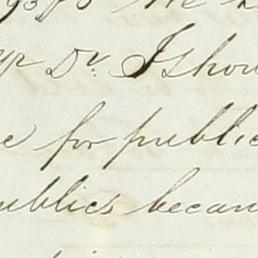 Dr. I shou
e for public
ublics becam